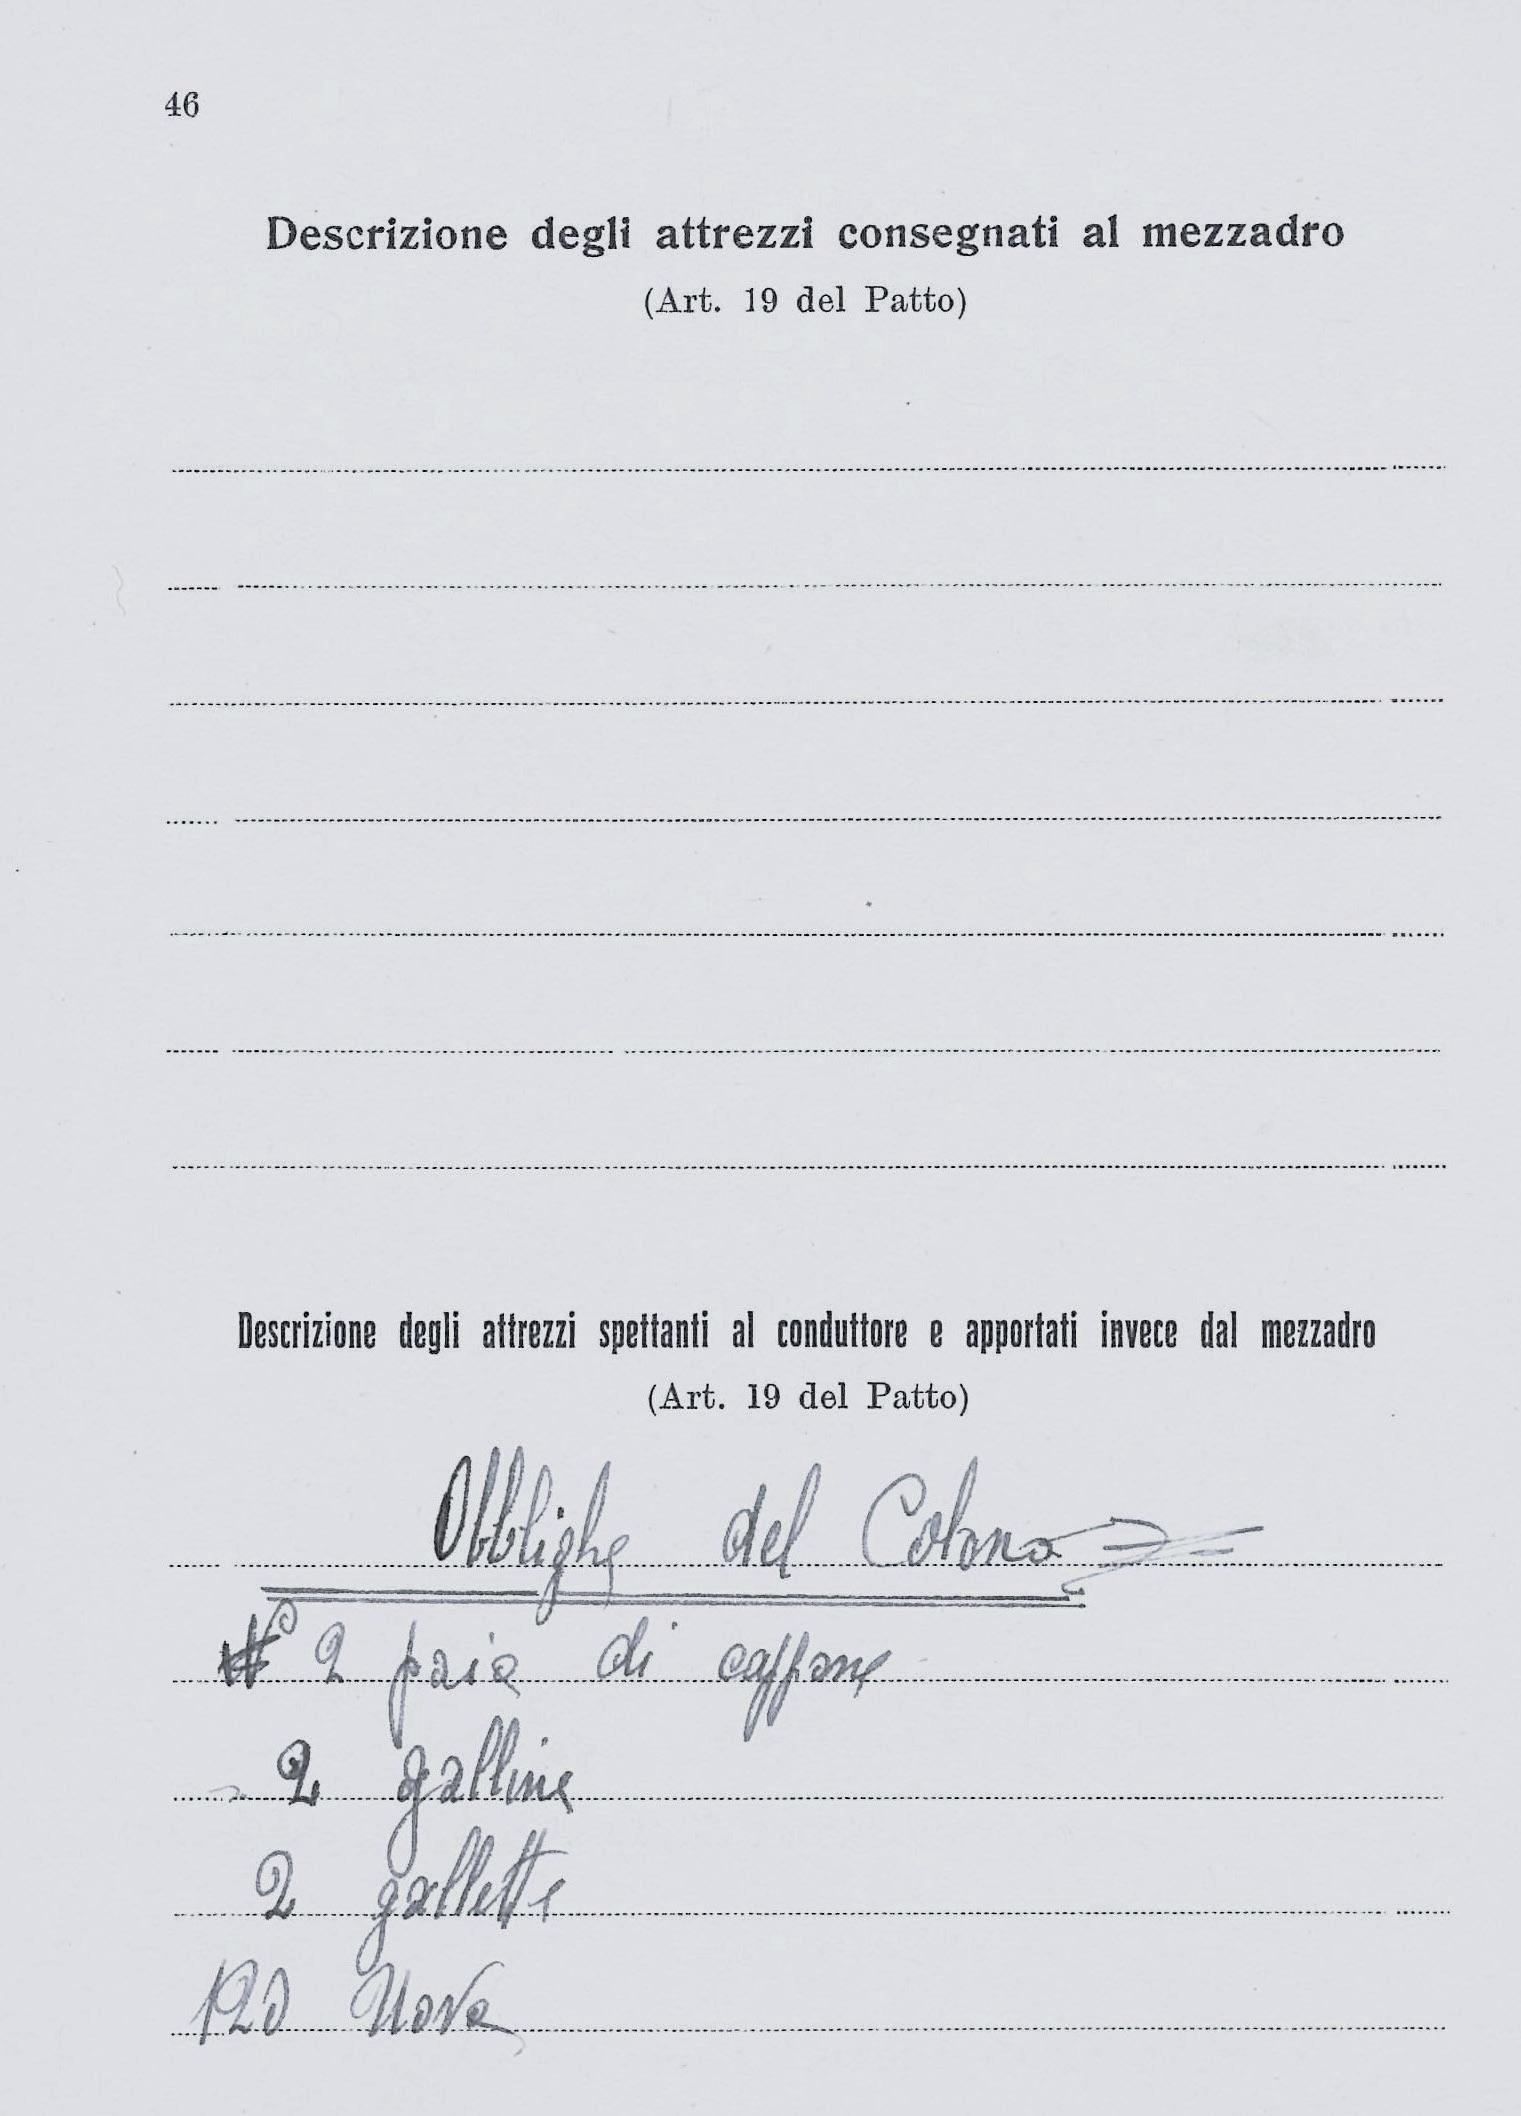 46
Descrizione degli attrezzi consegnati al mezzadro
(Art. 19 del Patto)
Descrizione degli attrezzi spettanti al conduttore e apportati invece dal mezzadro
(Art. 19 del Patto)
Obblighe del Colono
N° 2 paia di cappone
2 galline
2 gallette
120 Uova